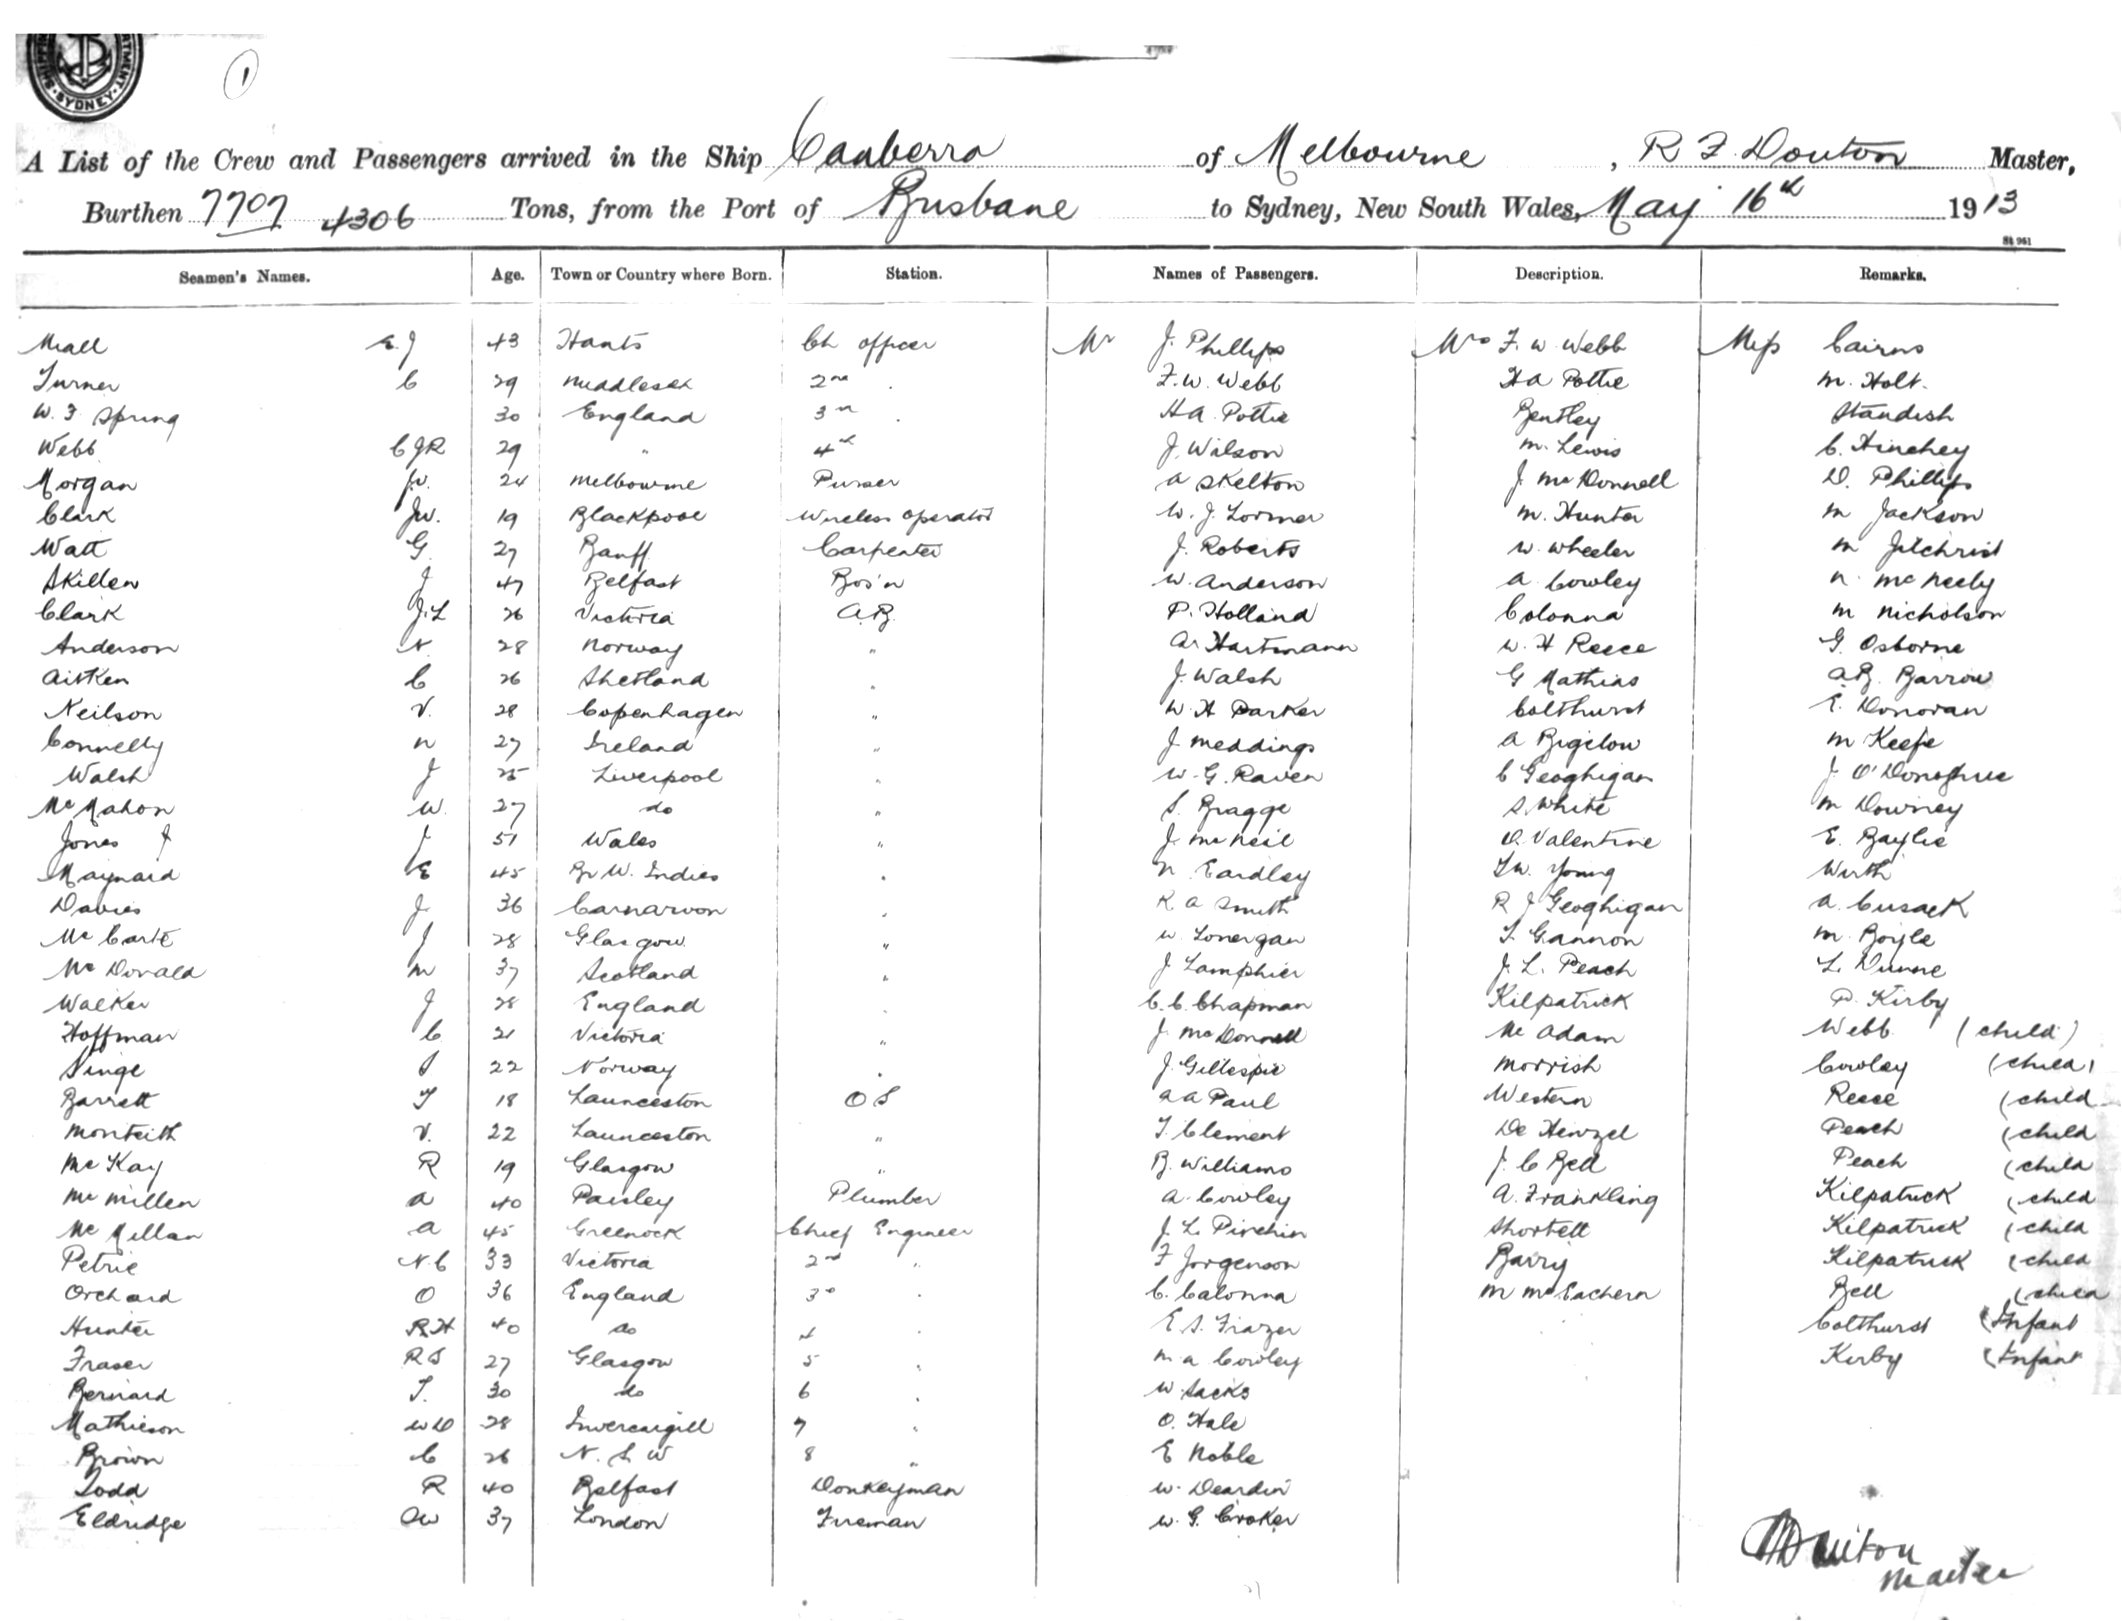 SHIPPING DEPARTMENT SYDNEY
1
A List of the Crew and Passengers arrived in the Ship Canberra of Melbourne, R F. Douton Master,
Burthen 7707 4306 Tons, from the Port of Brisbane to Sydney, New South Wales, May 16th 1913
St 961
Seamen's Names. Age. Town or Country where Born. Station. Names of Passengers. Description. Remarks.
Miall E. J 43 Hants Ch officer Mr J. Phillips Mrs F. W. Webb Miss Cairns
Turner C 29 Middlesex 2nd " F. W. Webb H A Pottie M. Holt.
W. F Spring 30 England 3rd " H A. Pottie Bentley Standish
Webb C J R 29 " 4th J. Wilson M. Lewis C. Hinchey
Morgan J. V. 24 Melbourne Purser A Skelton J. McDonnell D. Phillips
Clark J W. 19 Blackpool Wireless operator W. J. Lorimer M. Hunter M Jackson
Watt G. 27 Banff Carpenter J. Roberts W. Wheeler M Gilchrist
Skillen J 47 Belfast Bos'n W. Anderson A Cowley N. McNeely
Clark J. L 26 Victoria A.B. P. Holland Colonna M Nicholson
Anderson N. 28 Norway " A. Hartmann W. H Reece G. Osborne
Aitken C 26 Shetland " J. Walsh G Mathias A.B. Barrow
Neilson V. 28 Copenhagen " W. H Parker Colthurst E. Donovan
Connelly N 27 Ireland " J Meddings A Bigelow M Keefe
Walsh J 25 Liverpool " W. G. Raven C Geoghigan J. O'Donoghue
McMahon W. 27 do " S. Bragge S. White M Downey
Jones J J 51 Wales " J. McNeil O. Valentine E. Baylie
Maynard E 45 Br W. Indies " N. Eardley T W. Young Wirth
Davies J. 36 Carnarvon " R A Smith R J Geoghigan A. Cusack
McCarte J 28 Glasgow " W Lonergan T. Gannon M. Boyle
McDonald M 37 Scotland " J Lamphier J. L. Peach L. Dunne
Walker J 28 England " C. C. Chapman Kilpatrick P. Kirby
Hoffman C 21 Victoria " J. McDonnell McAdam Webb (child)
Singe S 22 Norway " J. Gillespie Morrish Cowley (child)
Barrett T 18 Launceston O S A A Paul Western Reece (child
Monteith V. 22 Launceston " T. Clement De Henzel Peach (child
McKay R 19 Glasgow " B. Williams J. C Bell Peach (child
McMillen A 40 Paisley Plumber A. Cowley A. Frankling Kilpatrick (child
McMillan A 45 Greenock Chief Engineer J. L. Pinchin Shortell Kilpatrick (child
Petrie N. C 33 Victoria 2nd " F Jorgenson Barry Kilpatrick (child
Orchard O 36 England 3rd " C. Calonna M McEachern Bell (child
Hunter R H 40 do 4 " E. S. Frazer Colthurst (Infant
Fraser R S 27 Glasgow 5 " M A Cowley Kirby (Infant
Bernard T. 30 do 6 " W. Sacks
Mathieson W D 28 Invercargill 7 " O. Hale
Brown C 26 N. S. W 8 " E Noble
Todd R 40 Belfast Donkeyman W. Deardin
Eldridge A W 37 London Fireman W. G. Croker
Douton
Master